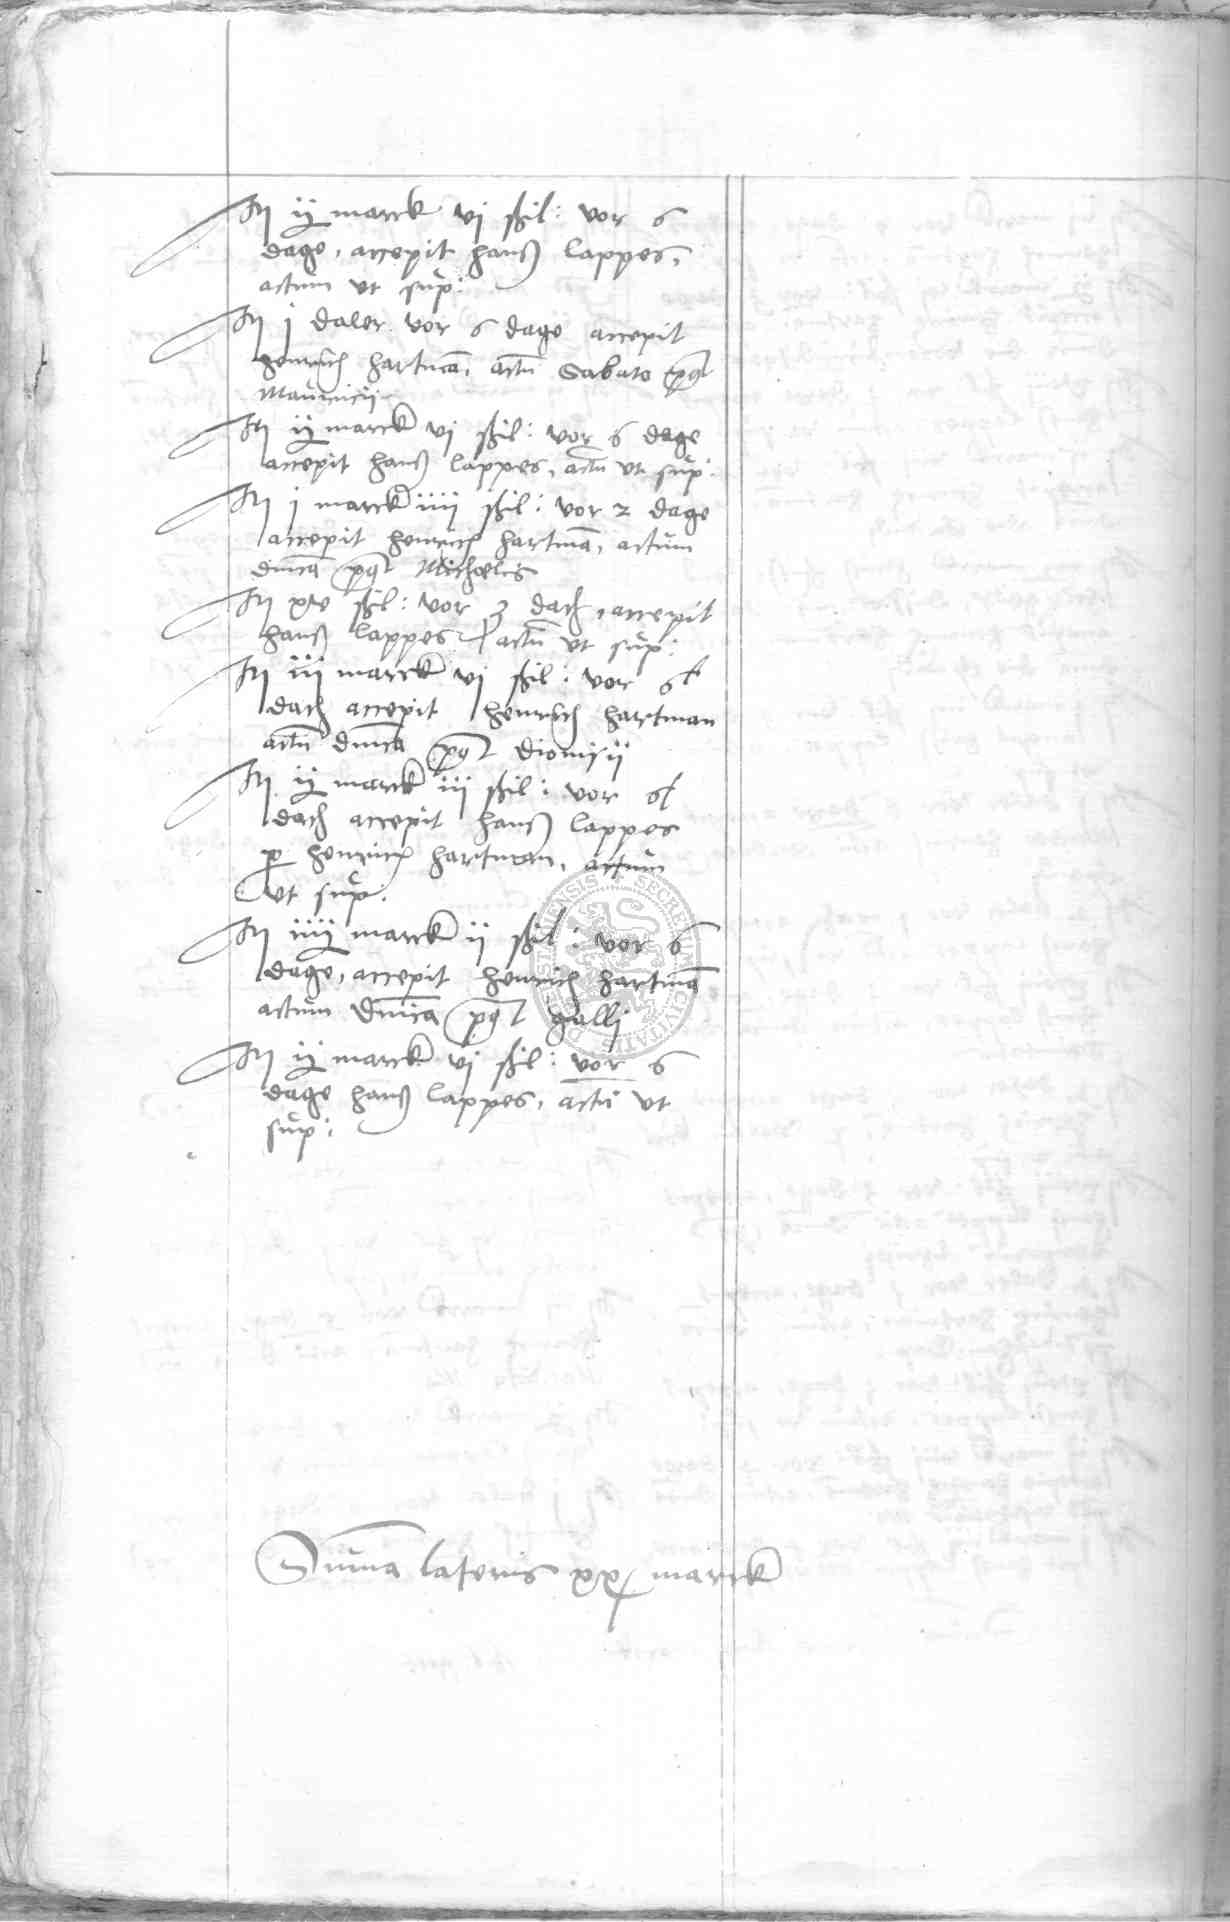 It ij marck vj ßil: vor 6
dage, accepit hanß lappes,
actum vt sup:
It j daler vor 6 dage accepit
henrich hartmā, actū Sabato post
Mauricij
It ij marck vj ßil: vor 6 dage
accepit hanß lappes, actū vt sup:
It j marck iiij ßil: vor 2 dage
accepit henrich hartmā, actum
dnica post Michaelis
It xv ßil: vor 3 dach, accepit
hanß lappes actū vt sup:
It iij marck vj ßil: vor 6
dach accepit henrich hartman
actū dnica post Dionisij
It ij marck iij ßil: vor 6
dach accepit hanß lappes
p henrich hartman, actum
vt sup:
It iiij marck ij ßil: vor 6
dage, accepit henrich hartmā
actum dnica post galli
It ij marck vj ßil: vor 6
dage hanß lappes, actū vt
sup:
SECRETUM CIVITATIS
Suma lateris xx marck